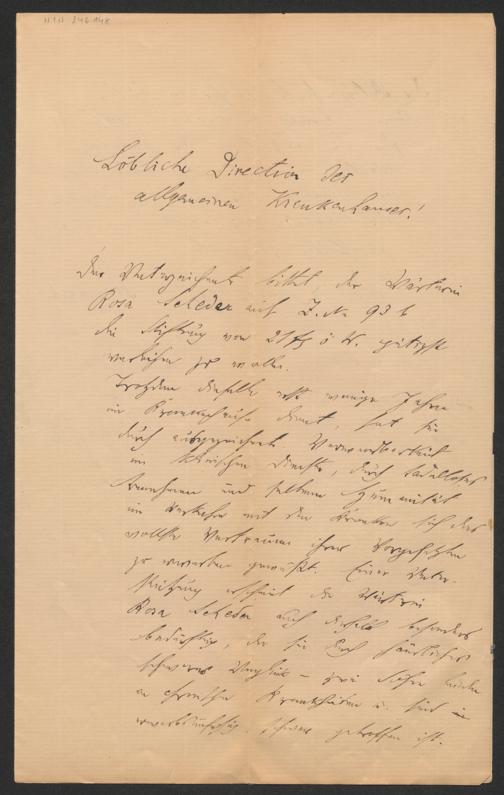 HIN 246.148
Löbliche Direction des
allgemeinen Krankenhauses!
Der Unterzeichnete bittet, der Wärterin
Rosa Seleder auf Z. No 93 b
die Stiftung von 21 f ö. W. gütigst
verleihen zu wollen.
Trotzdem dieselbe erst wenige Jahre
im Krankenhause dient, hat sie
durch ausgezeichnete Verwendbarkeit
im klinischen Dienste, durch tadelloses
Benehmen und seltene Humanität
im Verkehr mit den Kranken sich das
vollste Vertrauen ihrer Vorgesetzten
zu erwerben gewußt. Einer Unter-
stützung erscheint die Wärterin
Rosa Seleder auch deshalb besonders
bedürftig, da sie durch häusliches
schweres Unglück – zwei Söhne leiden
an chronischen Krankheiten u. sind
erwerbsunfähig, schwer getroffen ist.